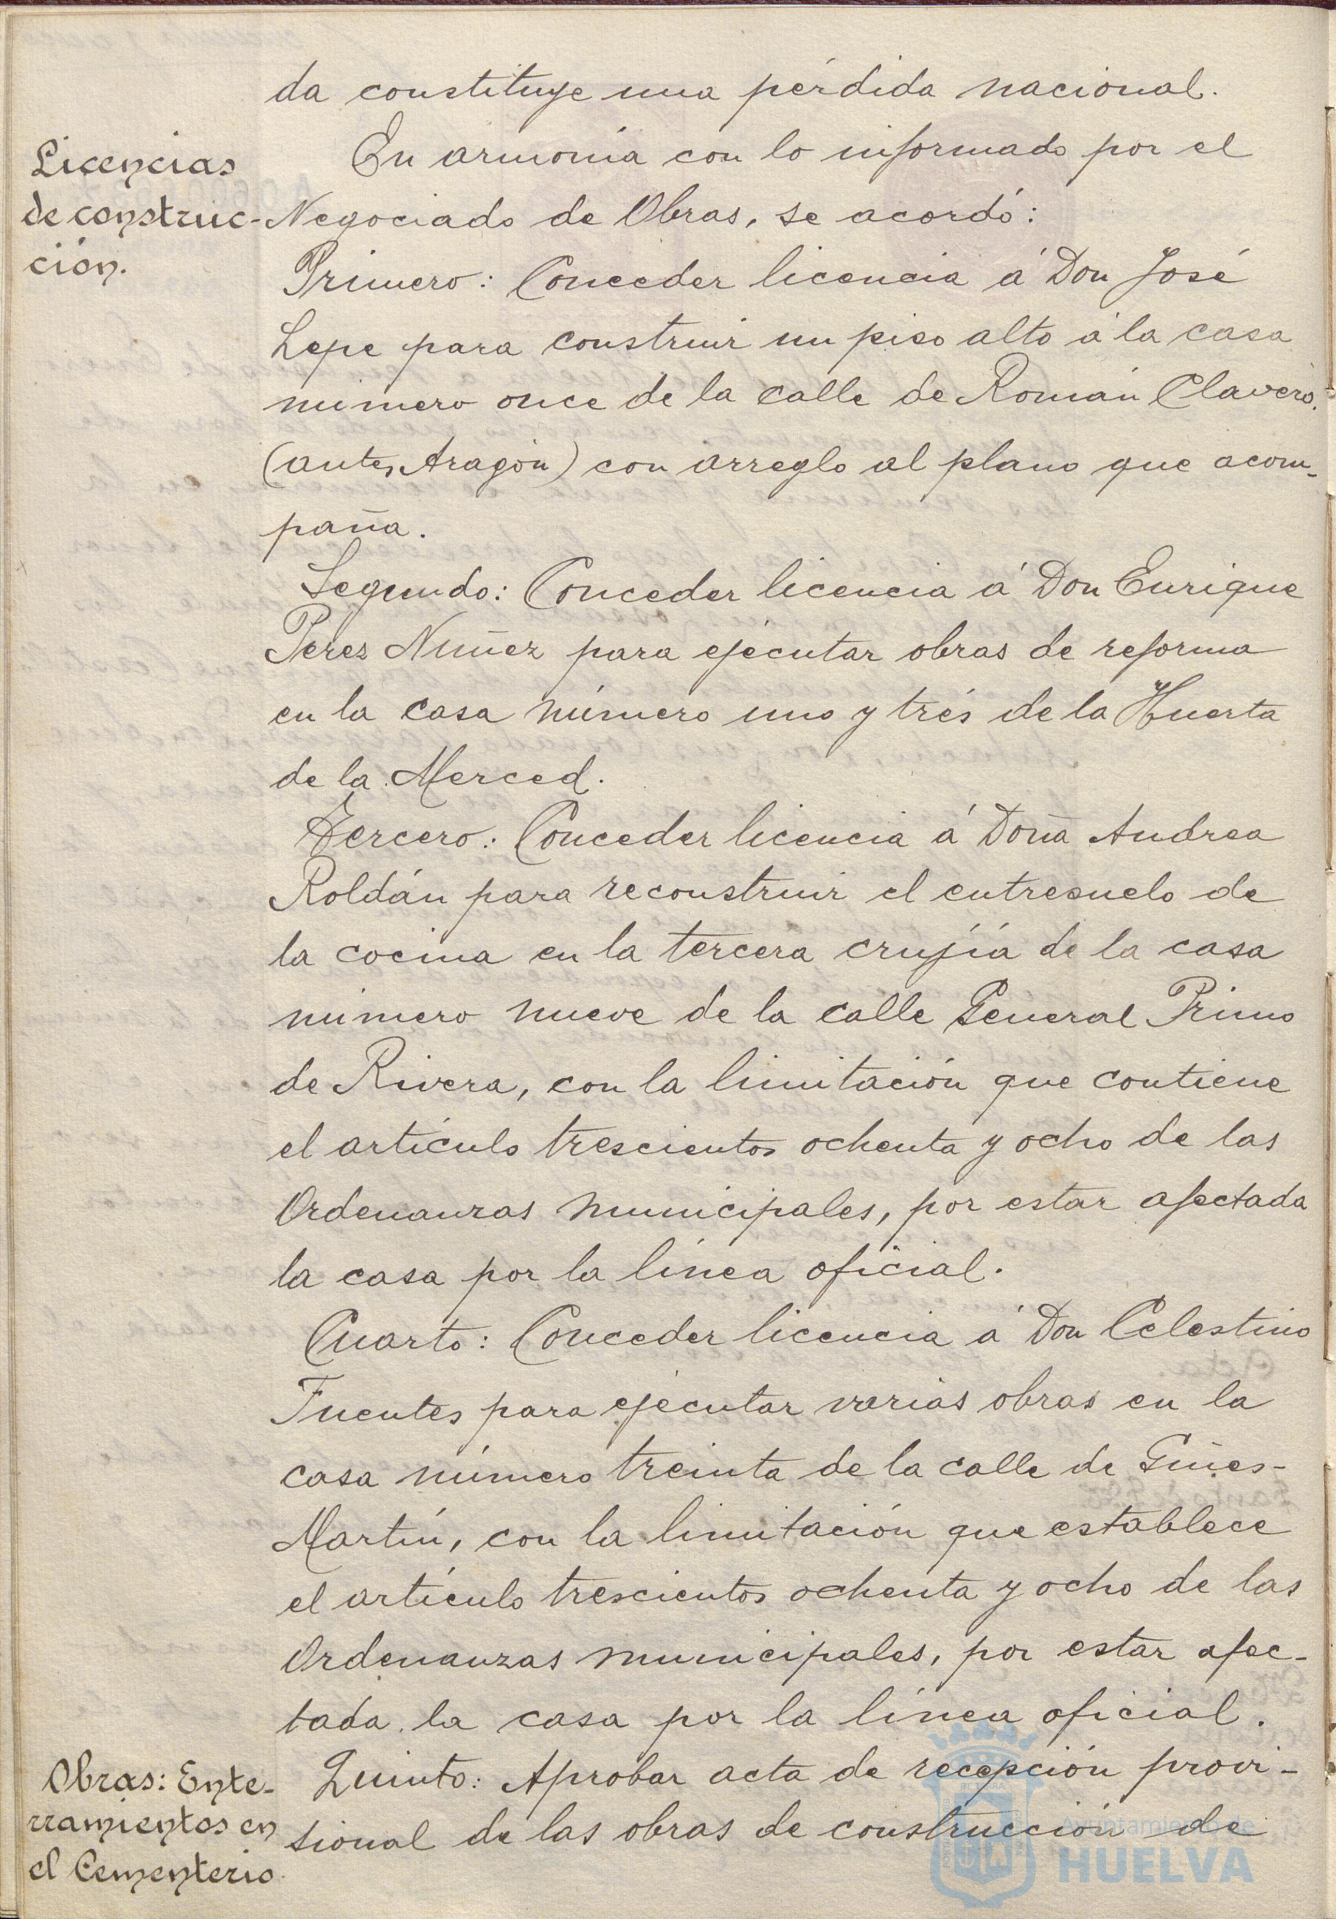 da constituye una pérdida nacional.
Licencias
de construc-
ción.
En armonía con lo informado por el
Negociado de Obras, se acordó:
Primero: Conceder licencia á Don José
Lepe para construir un piso alto á la casa
número once de la calle de Román Clavero.
(antes Aragón) con arreglo al plano que acom-
paña.
Segundo: Conceder licencia á Don Enrique
Perez Nuñez para ejecutar obras de reforma
en la casa número uno y trés de la Huerta
de la Merced.
Tercero: Conceder licencia á Doña Andrea
Roldán para reconstruir el entresuelo de
la cocina en la tercera crujía de la casa
número nueve de la calle General Primo
de Rivera, con la limitación que contiene
el artículo trescientos ochenta y ocho de las
Ordenanzas municipales, por estar afectada
la casa por la línea oficial.
Cuarto: Conceder licencia á Don Celestino
Fuentes para ejecutar varias obras en la
casa número treinta de la calle de Ginés-
Martín, con la limitación que establece
el artículo trescientos ochenta y ocho de las
Ordenanzas municipales, por estar afec-
tada la casa por la línea oficial.
Obras: Ente-
rramientos en
el Cementerio
Quinto: Aprobar acta de recepción provi-
sional de las obras de construcción de
Ayuntamiento de
HUELVA